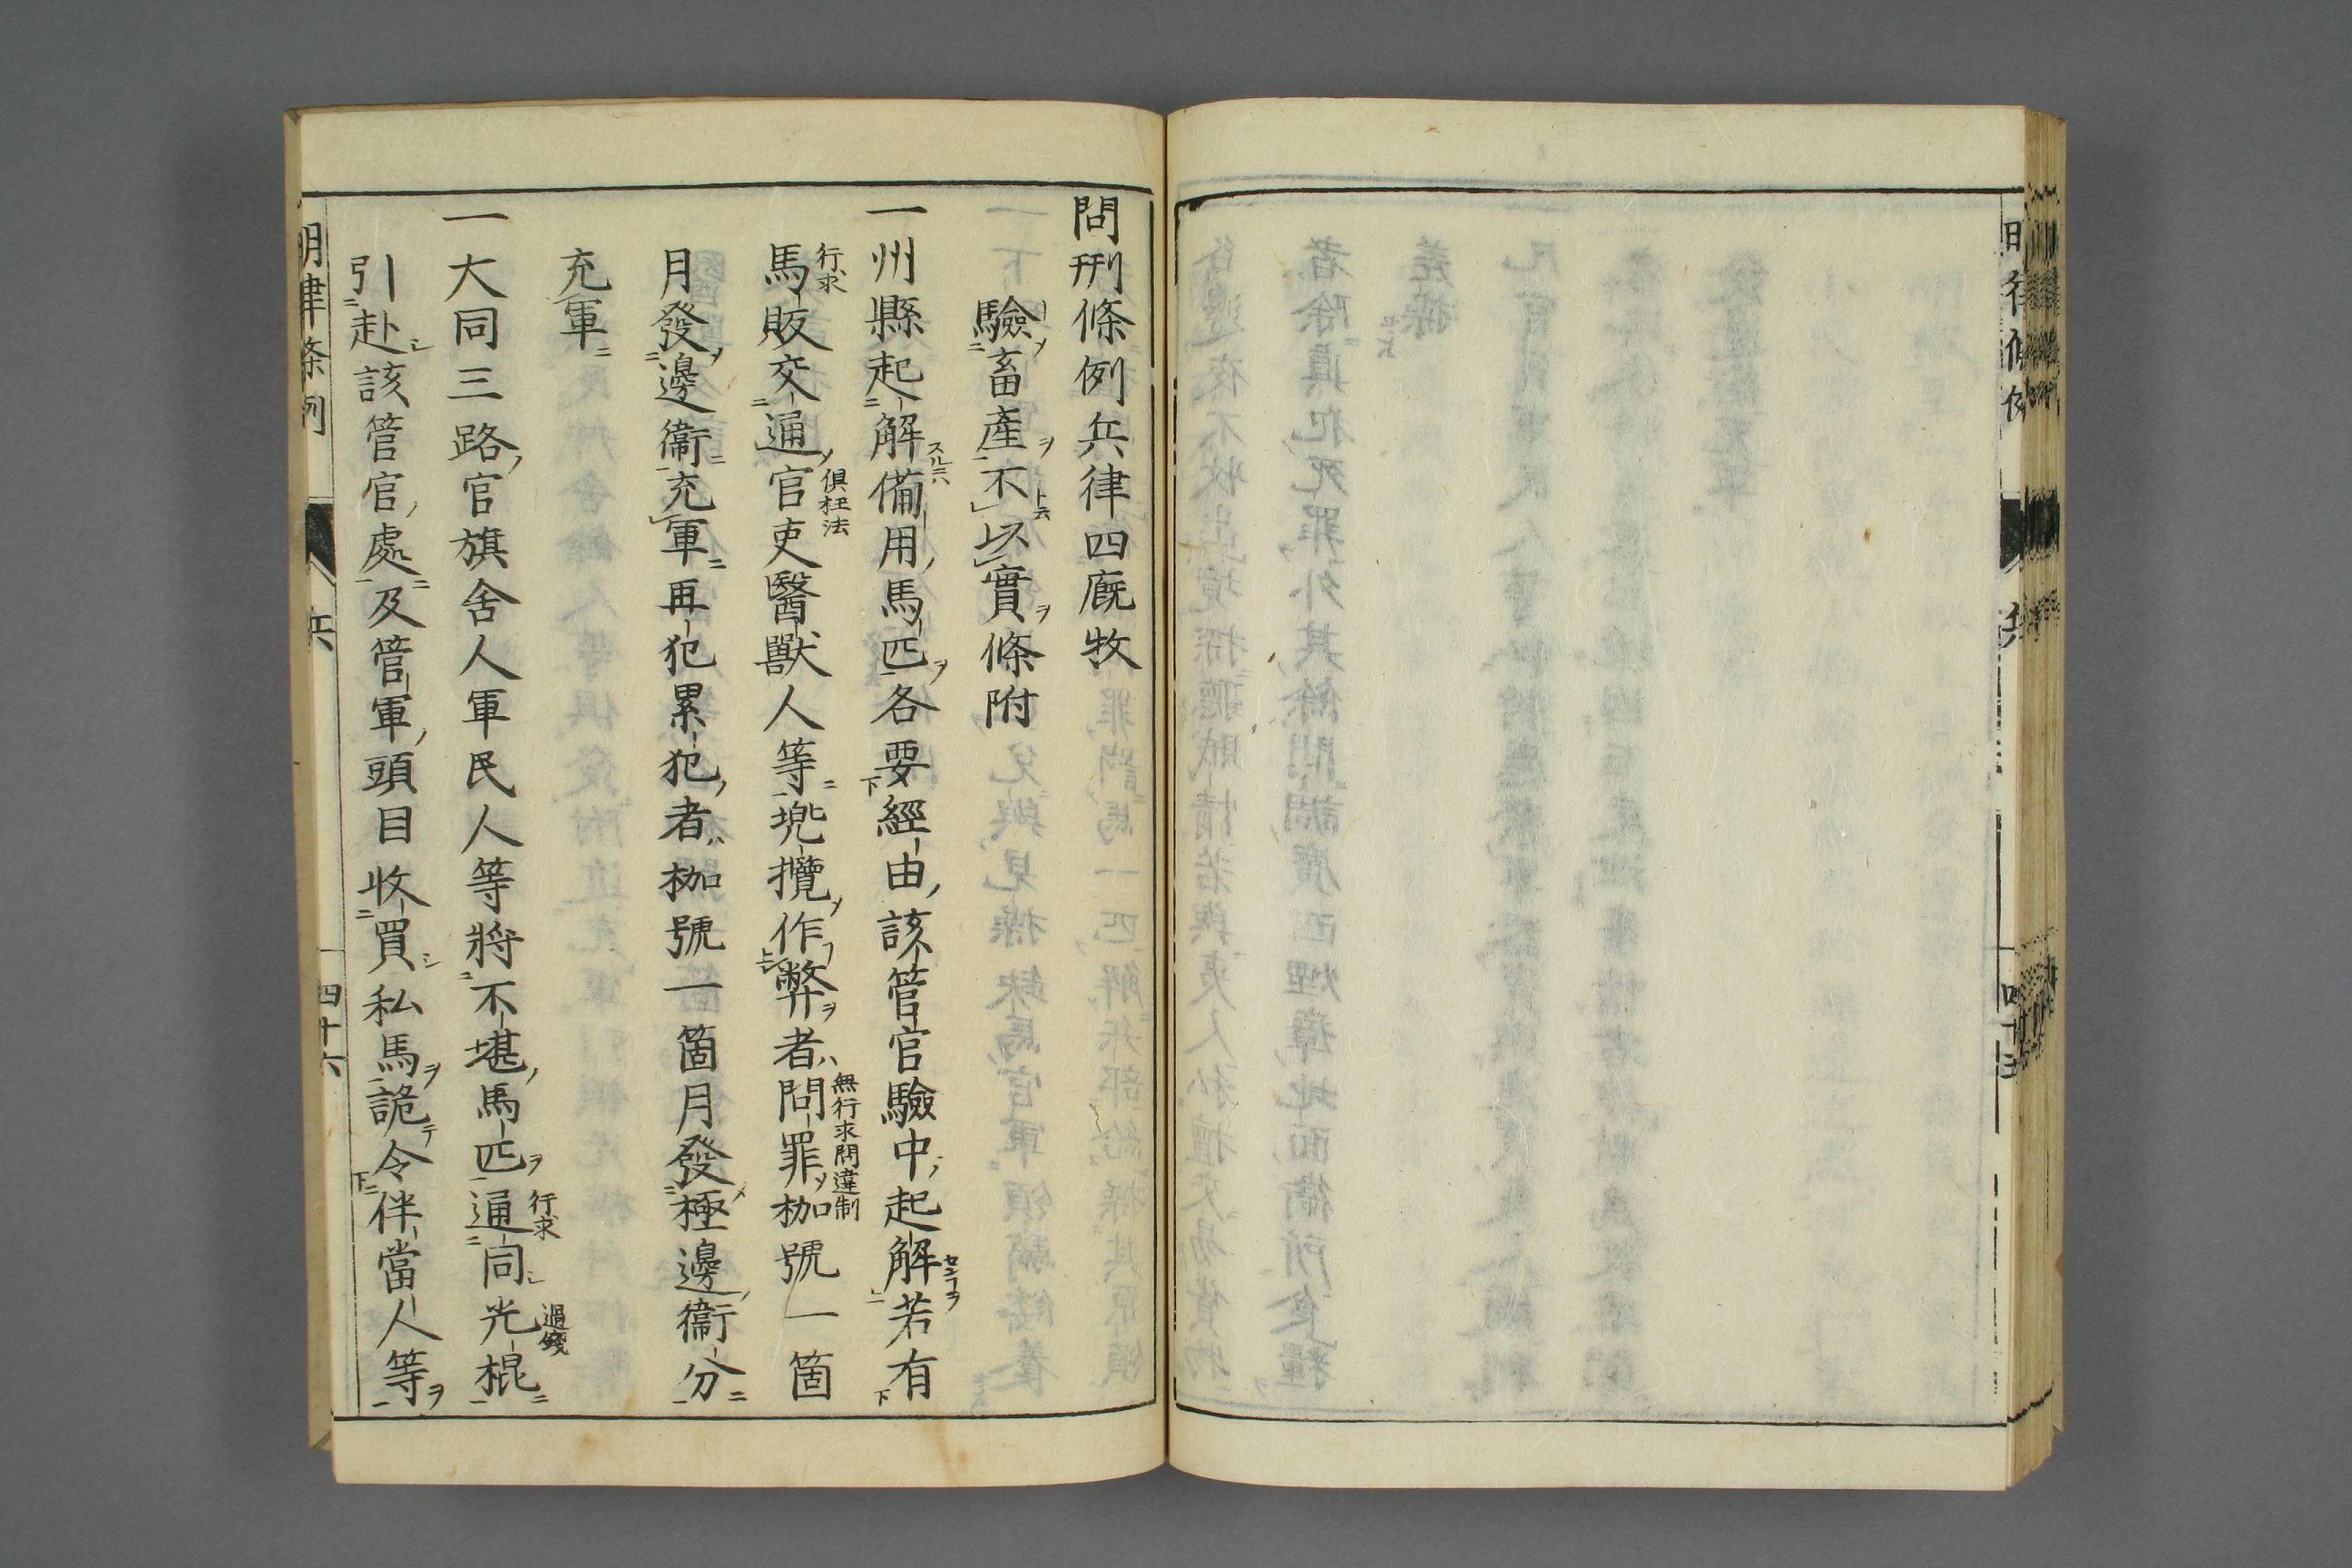 問刑條例兵律四廐牧
驗畜產不以實條附
一州縣起解備用馬匹各要經由該管官驗中起解若有
馬販交通官吏醫獸人等兠攬作弊者問罪枷號一箇
行求
俱枉法
無行求問違制
月發邊衞充軍再犯累犯者枷號一箇月發極邊衞分
充軍
一大同三路官旗舍人軍民人等將不堪馬匹通同光棍
行求
過錢
引赴該管官處及管軍頭目收買私馬詭令伴當人等
明律條例
兵
四十六